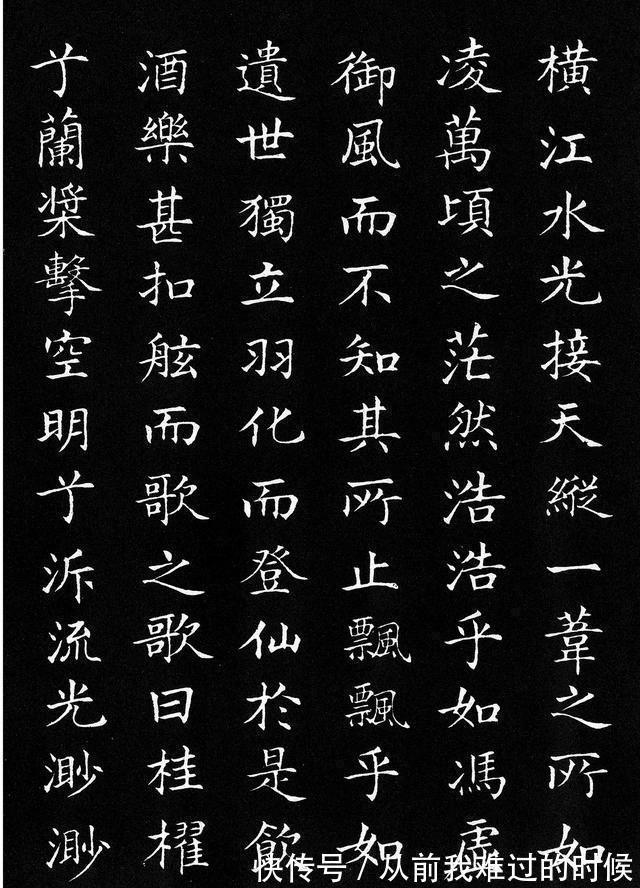 橫江水光接天縱一葦之所如
凌萬頃之茫然浩浩乎如馮虛
御風而不知其所止飄飄乎如
遺世獨立羽化而登仙於是飲
酒樂甚扣舷而歌之歌曰桂櫂
兮蘭槳擊空明兮泝流光渺渺
快传号／从前我难过的时候